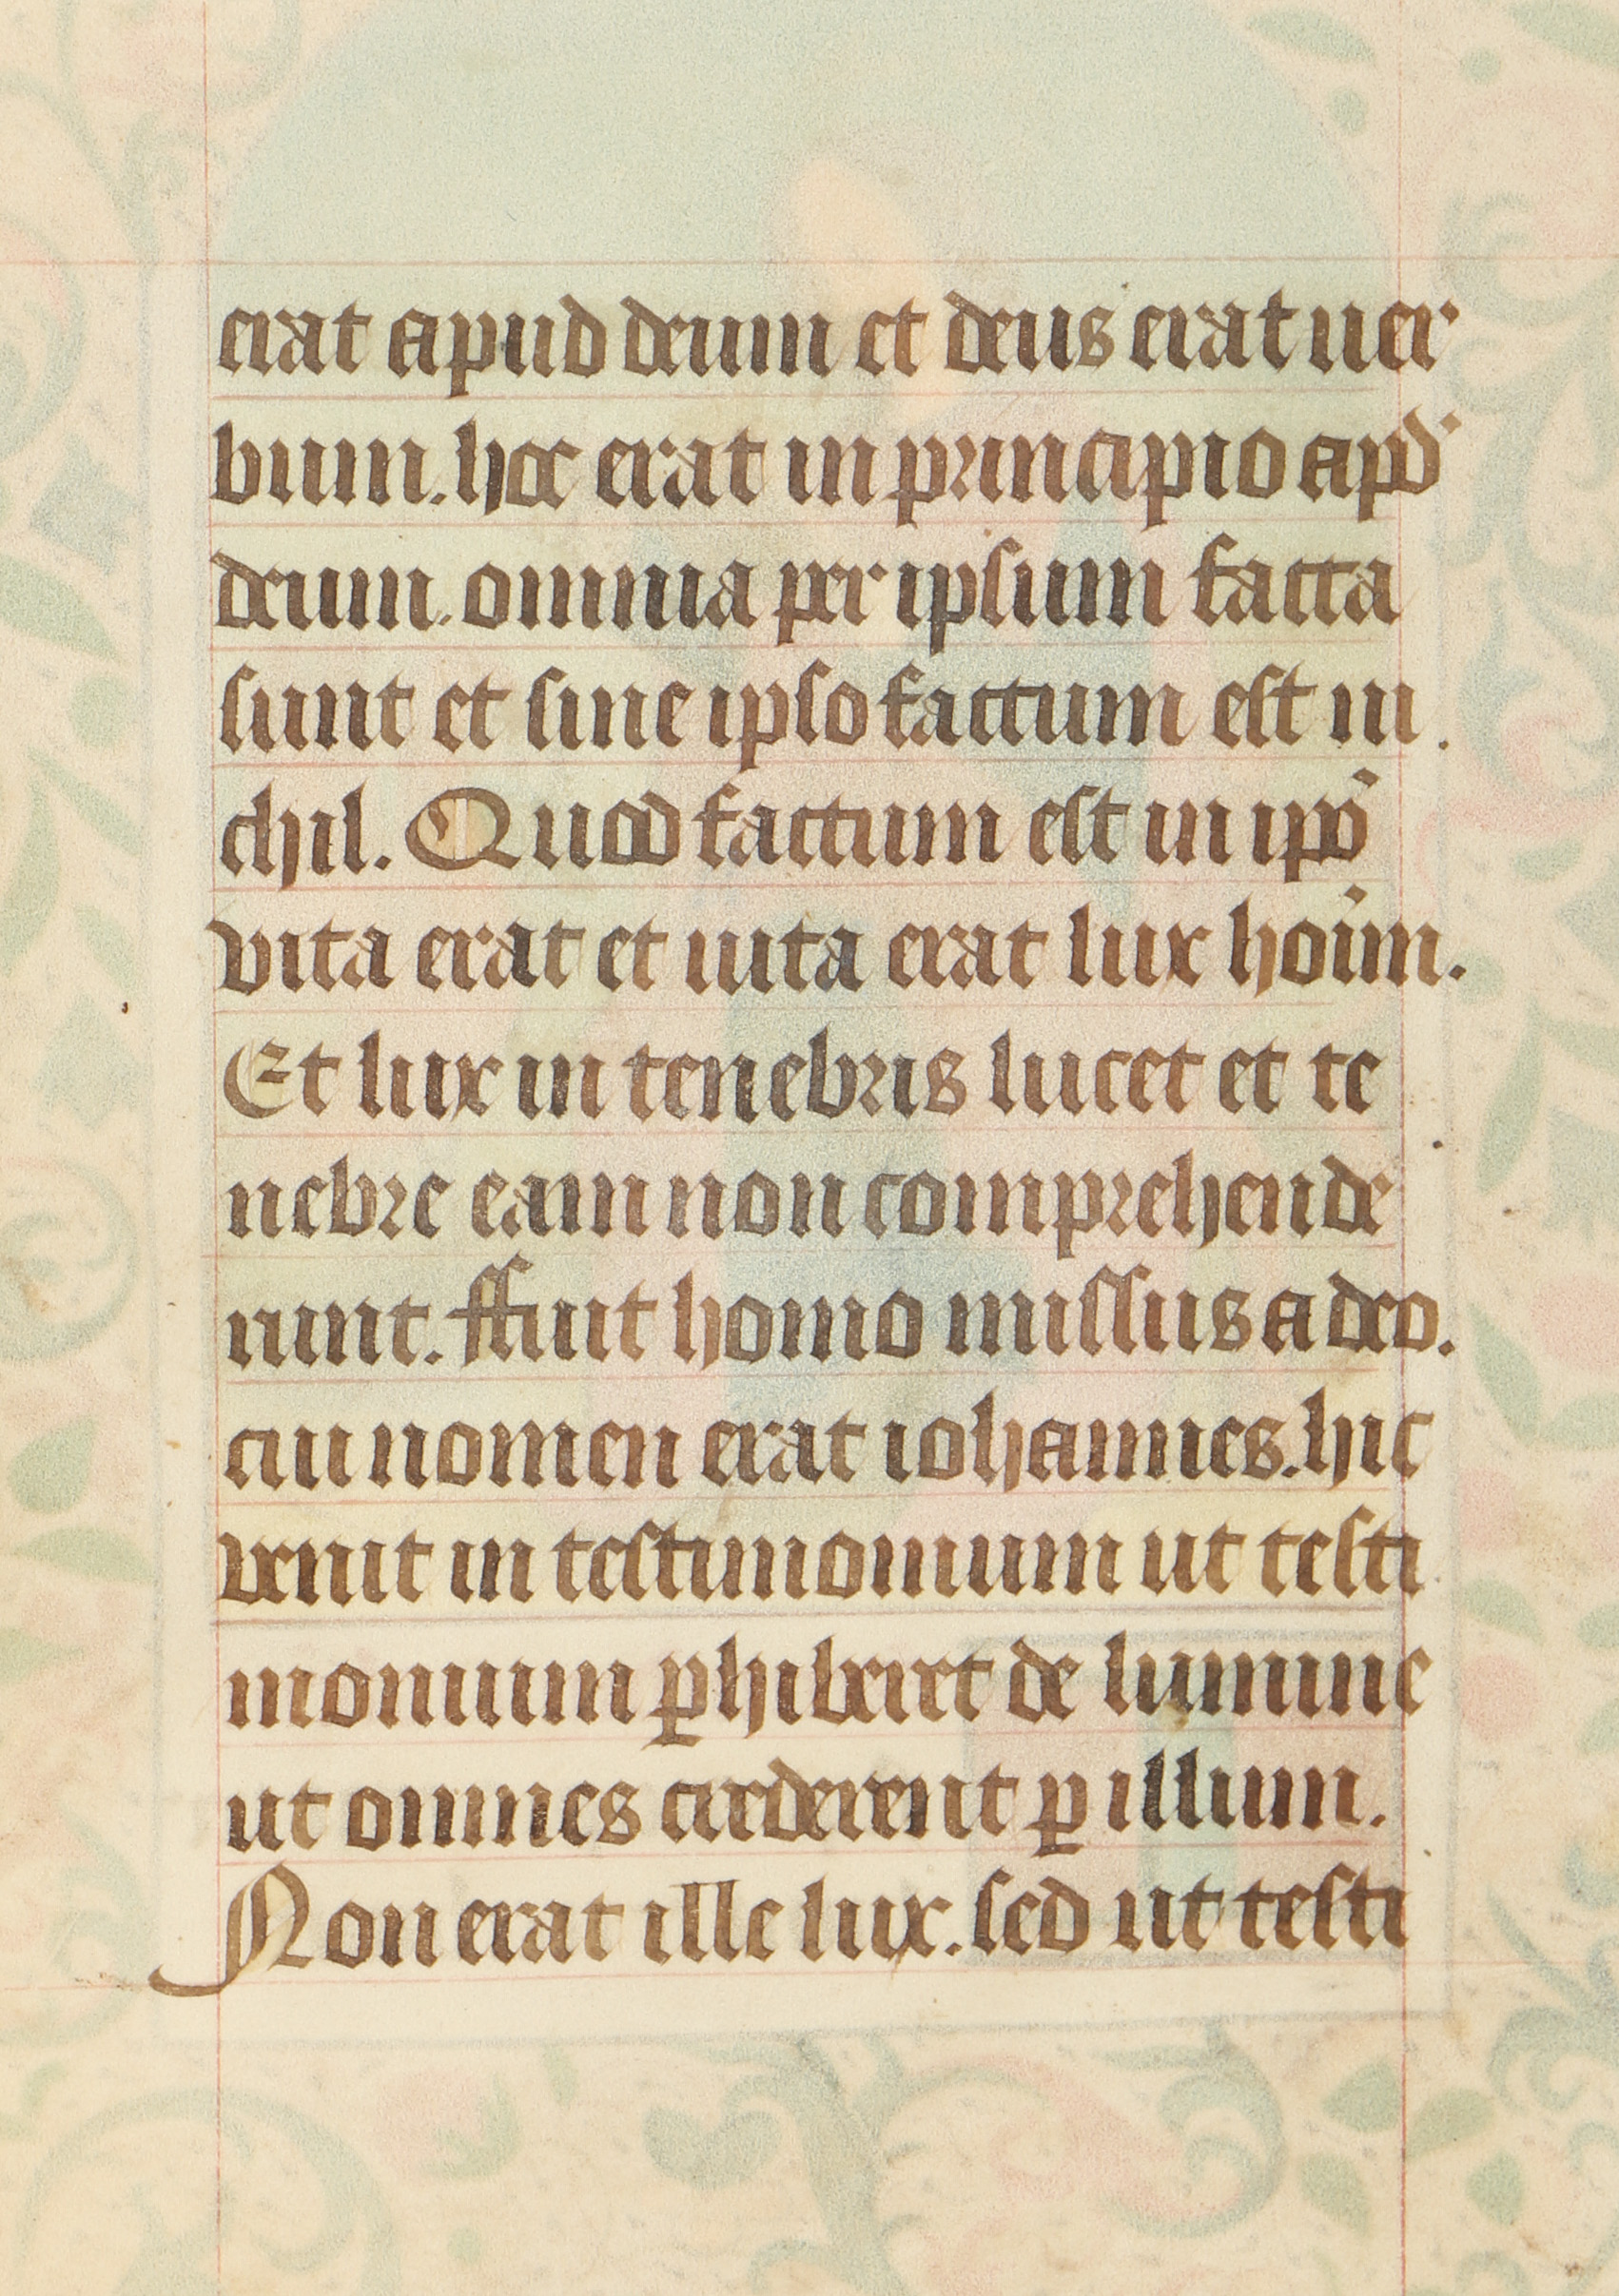 erat apud deum et deus erat uer
bum. hoc erat in principio apd̄
deum. omnia per ipsum facta
sunt et sine ipso factum est ni
chil. Quod factum est in ip̄o
vita erat et uita erat lux hoīm.
Et lux in tenebris lucet et te
nebre eam non comprehende
runt. ffuit homo missus a deo.
cui nomen erat iohannes. hic
venit in testimonium ut testi
monium ꝑhiberet de lumine
ut omnes crederent ꝑ illum.
Non erat ille lux. sed ut testi